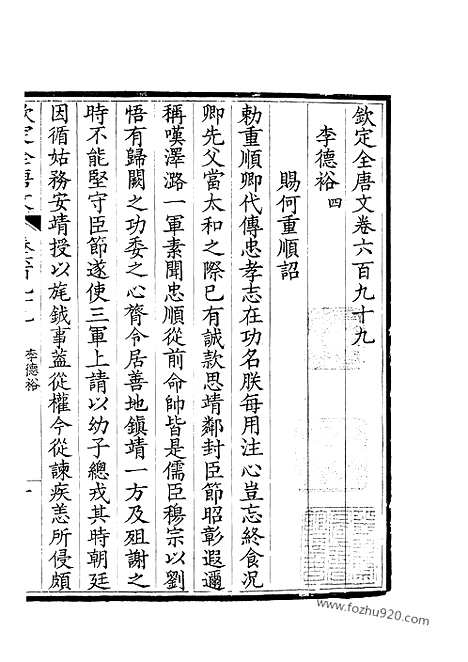 欽定全唐文卷六百九十九
李德裕四
賜何重順詔
勅重順卿代傳忠孝志在功名朕每用注心豈忘終食況
卿先父當太和之際已有誠款思靖鄰封臣節昭彰遐邇
稱嘆澤潞一軍素聞忠順從前命帥皆是儒臣穆宗以劉
悟有歸闕之功委之心膂令居善地鎮靖一方及殂謝之
時不能堅守臣節遂使三軍上請以幼子總戎其時朝廷
因循姑務安靖授以旄鉞事蓋從權今從諫疾恙所侵頗
欽定全唐文
李德裕
一
www.fozhu920.com